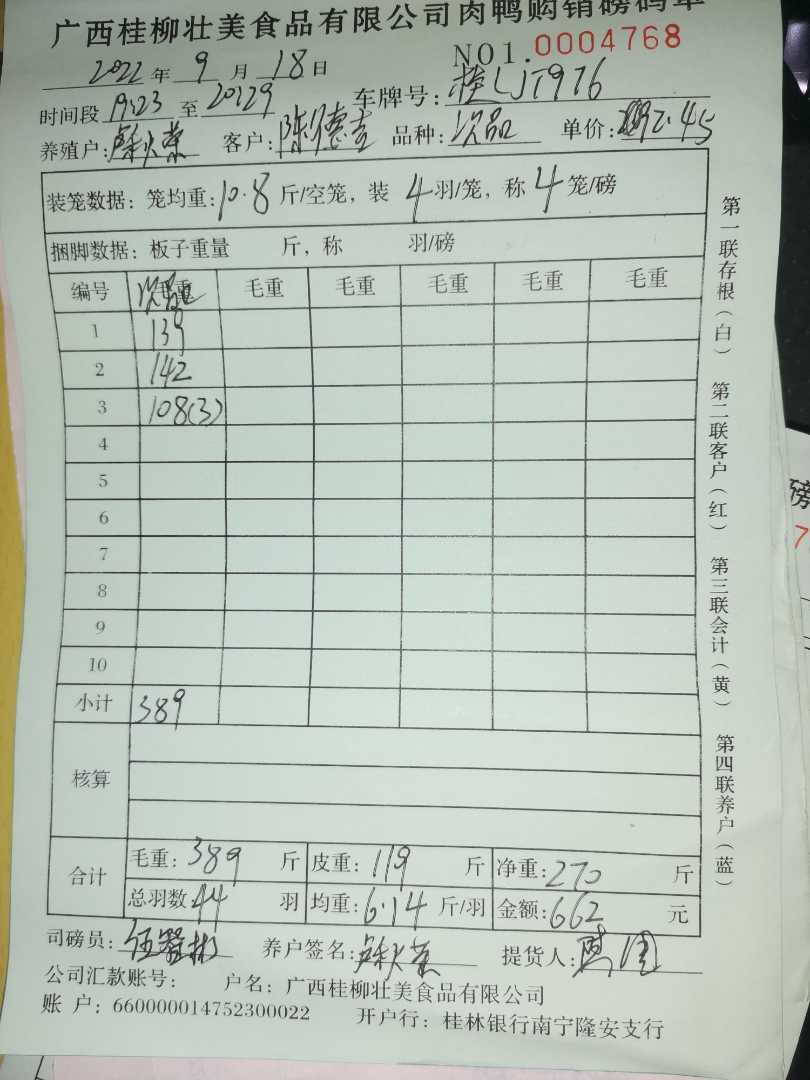 广西桂柳壮美食品有限公司肉鸭购销磅码单
NO1.0004768
2022年9月18日
时间段19:23至20:29 车牌号:桂LJT976
养殖户: 客户:陈德 品种:次品 单价:2.45
装笼数据:笼均重:10.8斤/空笼,装4羽/笼,称4笼/磅
捆脚数据:板子重量 斤,称 羽/磅
编号 毛重 毛重 毛重 毛重 毛重
1 139
2 142
3 108(3)
4
5
6
7
8
9
10
小计 389
核算
合计 毛重:389斤 皮重:119斤 净重:270斤
总羽数44羽 均重:6.14斤/羽 金额:662元
司磅员: 养户签名: 提货人:
公司汇款账号: 户名:广西桂柳壮美食品有限公司
账 户:660000014752300022 开户行:桂林银行南宁隆安支行
第一联存根(白) 第二联客户(红) 第三联会计(黄) 第四联养户(蓝)
磅
7